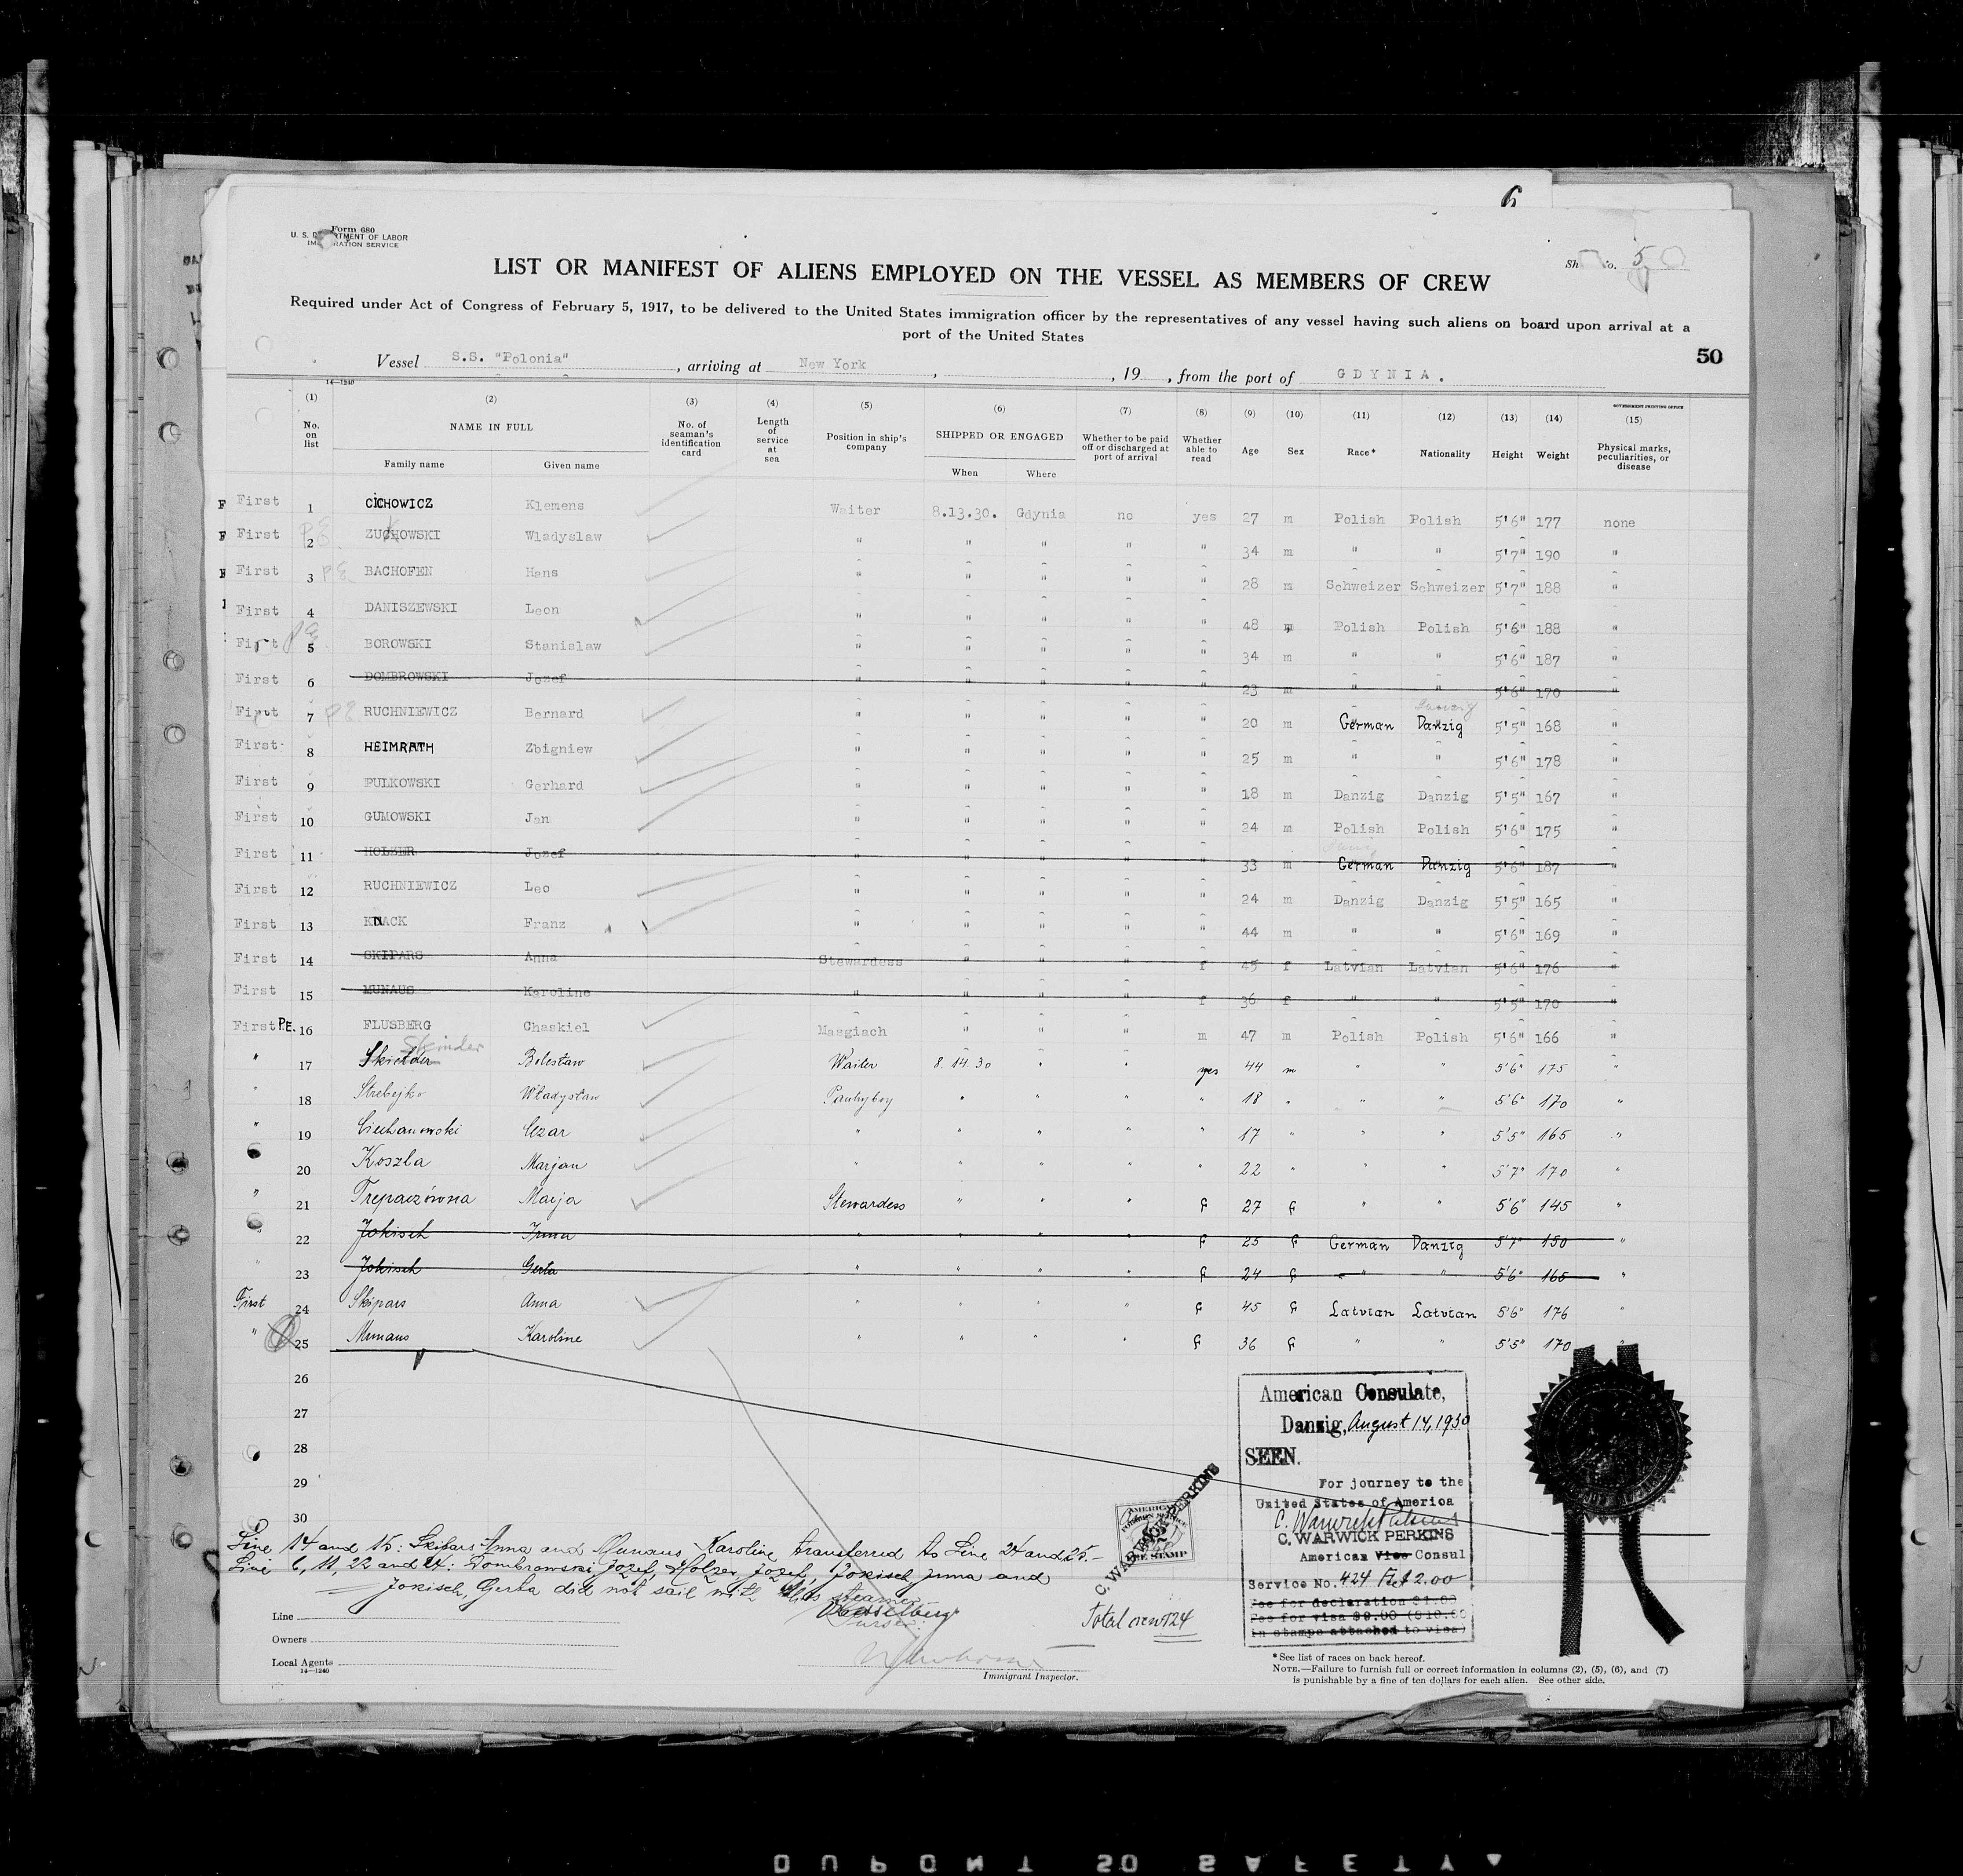 6
Form 680
U. S. DEPARTMENT OF LABOR
IMMIGRATION SERVICE
LIST OR MANIFEST OF ALIENS EMPLOYED ON THE VESSEL AS MEMBERS OF CREW
No. 5
Required under Act of Congress of February 5, 1917, to be delivered to the United States immigration officer by the representatives of any vessel having such aliens on board upon arrival at a
port of the United States
50
Vessel S.S. "Polonia" , arriving at New York , , 19 , from the port of GDYNIA.
14—1240
GOVERNMENT PRINTING OFFICE
(1) (2) (3) (4) (5) (6) (7) (8) (9) (10) (11) (12) (13) (14) (15)
No. on list NAME IN FULL Family name Given name No. of seaman's identification card Length of service at sea Position in ship's company SHIPPED OR ENGAGED When Where Whether to be paid off or discharged at port of arrival Whether able to read Age Sex Race* Nationality Height Weight Physical marks, peculiarities, or disease
First 1 CICHOWICZ Klemens Waiter 8.13.30. Gdynia no yes 27 m Polish Polish 5'6" 177 none
First 2 ZUCHOWSKI Wladyslaw " " " " " 34 m " " 5'7" 190 "
First 3 BACHOFEN Hans " " " " " 28 m Schweizer Schweizer 5'7" 188 "
First 4 DANISZEWSKI Leon " " " " " 48 m Polish Polish 5'6" 188 "
First 5 BOROWSKI Stanislaw " " " " " 34 m " " 5'6" 187 "
First 6 DOMBROWSKI Jozef " " " " " 23 m " " 5'6" 170 "
First 7 RUCHNIEWICZ Bernard " " " " " 20 m German Danzig 5'5" 168 "
First 8 HEIMRATH Zbigniew " " " " " 25 m " " 5'6" 178 "
First 9 PULKOWSKI Gerhard " " " " " 18 m Danzig Danzig 5'5" 167 "
First 10 GUMOWSKI Jan " " " " " 24 m Polish Polish 5'6" 175 "
First 11 HOLZER Jozef " " " " " 33 m German Danzig 5'6" 187 "
First 12 RUCHNIEWICZ Leo " " " " " 24 m Danzig Danzig 5'5" 165 "
First 13 KNACK Franz " " " " " 44 m " " 5'6" 169 "
First 14 SKIPARS Anna Stewardess " " " f 45 f Latvian Latvian 5'6" 176 "
First 15 MUNAUS Karoline " " " " f 36 f " " 5'5" 170 "
First P.E. 16 FLUSBERG Chaskiel Masgiach " " " m 47 m Polish Polish 5'6" 166 "
Skinder
" 17 Bolesław Waiter 8.14.30 " " yes 44 m " " 5'6" 175 "
" 18 Strebejko Władysław Pantryboy " " " " 18 " " " 5'6" 170 "
" 19 Ciechanowski Cezar " " " " " 17 " " " 5'5" 165 "
20 Koszla Marjan " " " " " 22 " " " 5'7" 170 "
" 21 Trepaczówna Marja Stewardess " " " f 27 f " " 5'6" 145 "
" 22 Jokisch Irma " " " " f 25 f German Danzig 5'7" 150 "
" 23 Jokisch Gerta " " " " f 24 f " " 5'6" 165 "
First 24 Skipars Anna " " " " f 45 f Latvian Latvian 5'6" 176 "
" 25 Munaus Karoline " " " " f 36 f " " 5'5" 170 "
26
27
28
29
30
American Consulate,
Danzig, August 14, 1930
SEEN.
For journey to the
United States of America
C. Warwick Perkins
C. WARWICK PERKINS
American Vice Consul
Service No. 424 Fee $2.00
Fee for declaration $1.00
Fee for visa $9.00 ($10.00
in stamps attached to visa)
AMERICAN
FOREIGN SERVICE
FEE STAMP
C. WARWICK PERKINS
Line 14 and 15: Skipars Anna and Munaus Karoline transferred to Line 24 and 25.—
Line 6, 11, 22 and 24: Dombrowski Jozef, Holzer Jozef, Jokisch Irma and
Jokisch, Gerta did not sail with this steamer
Purser.
Total crew 124
Line
Owners
Local Agents
14—1240
Immigrant Inspector.
* See list of races on back hereof.
NOTE.—Failure to furnish full or correct information in columns (2), (5), (6), and (7)
is punishable by a fine of ten dollars for each alien. See other side.
DUPONT 50 SAFETY